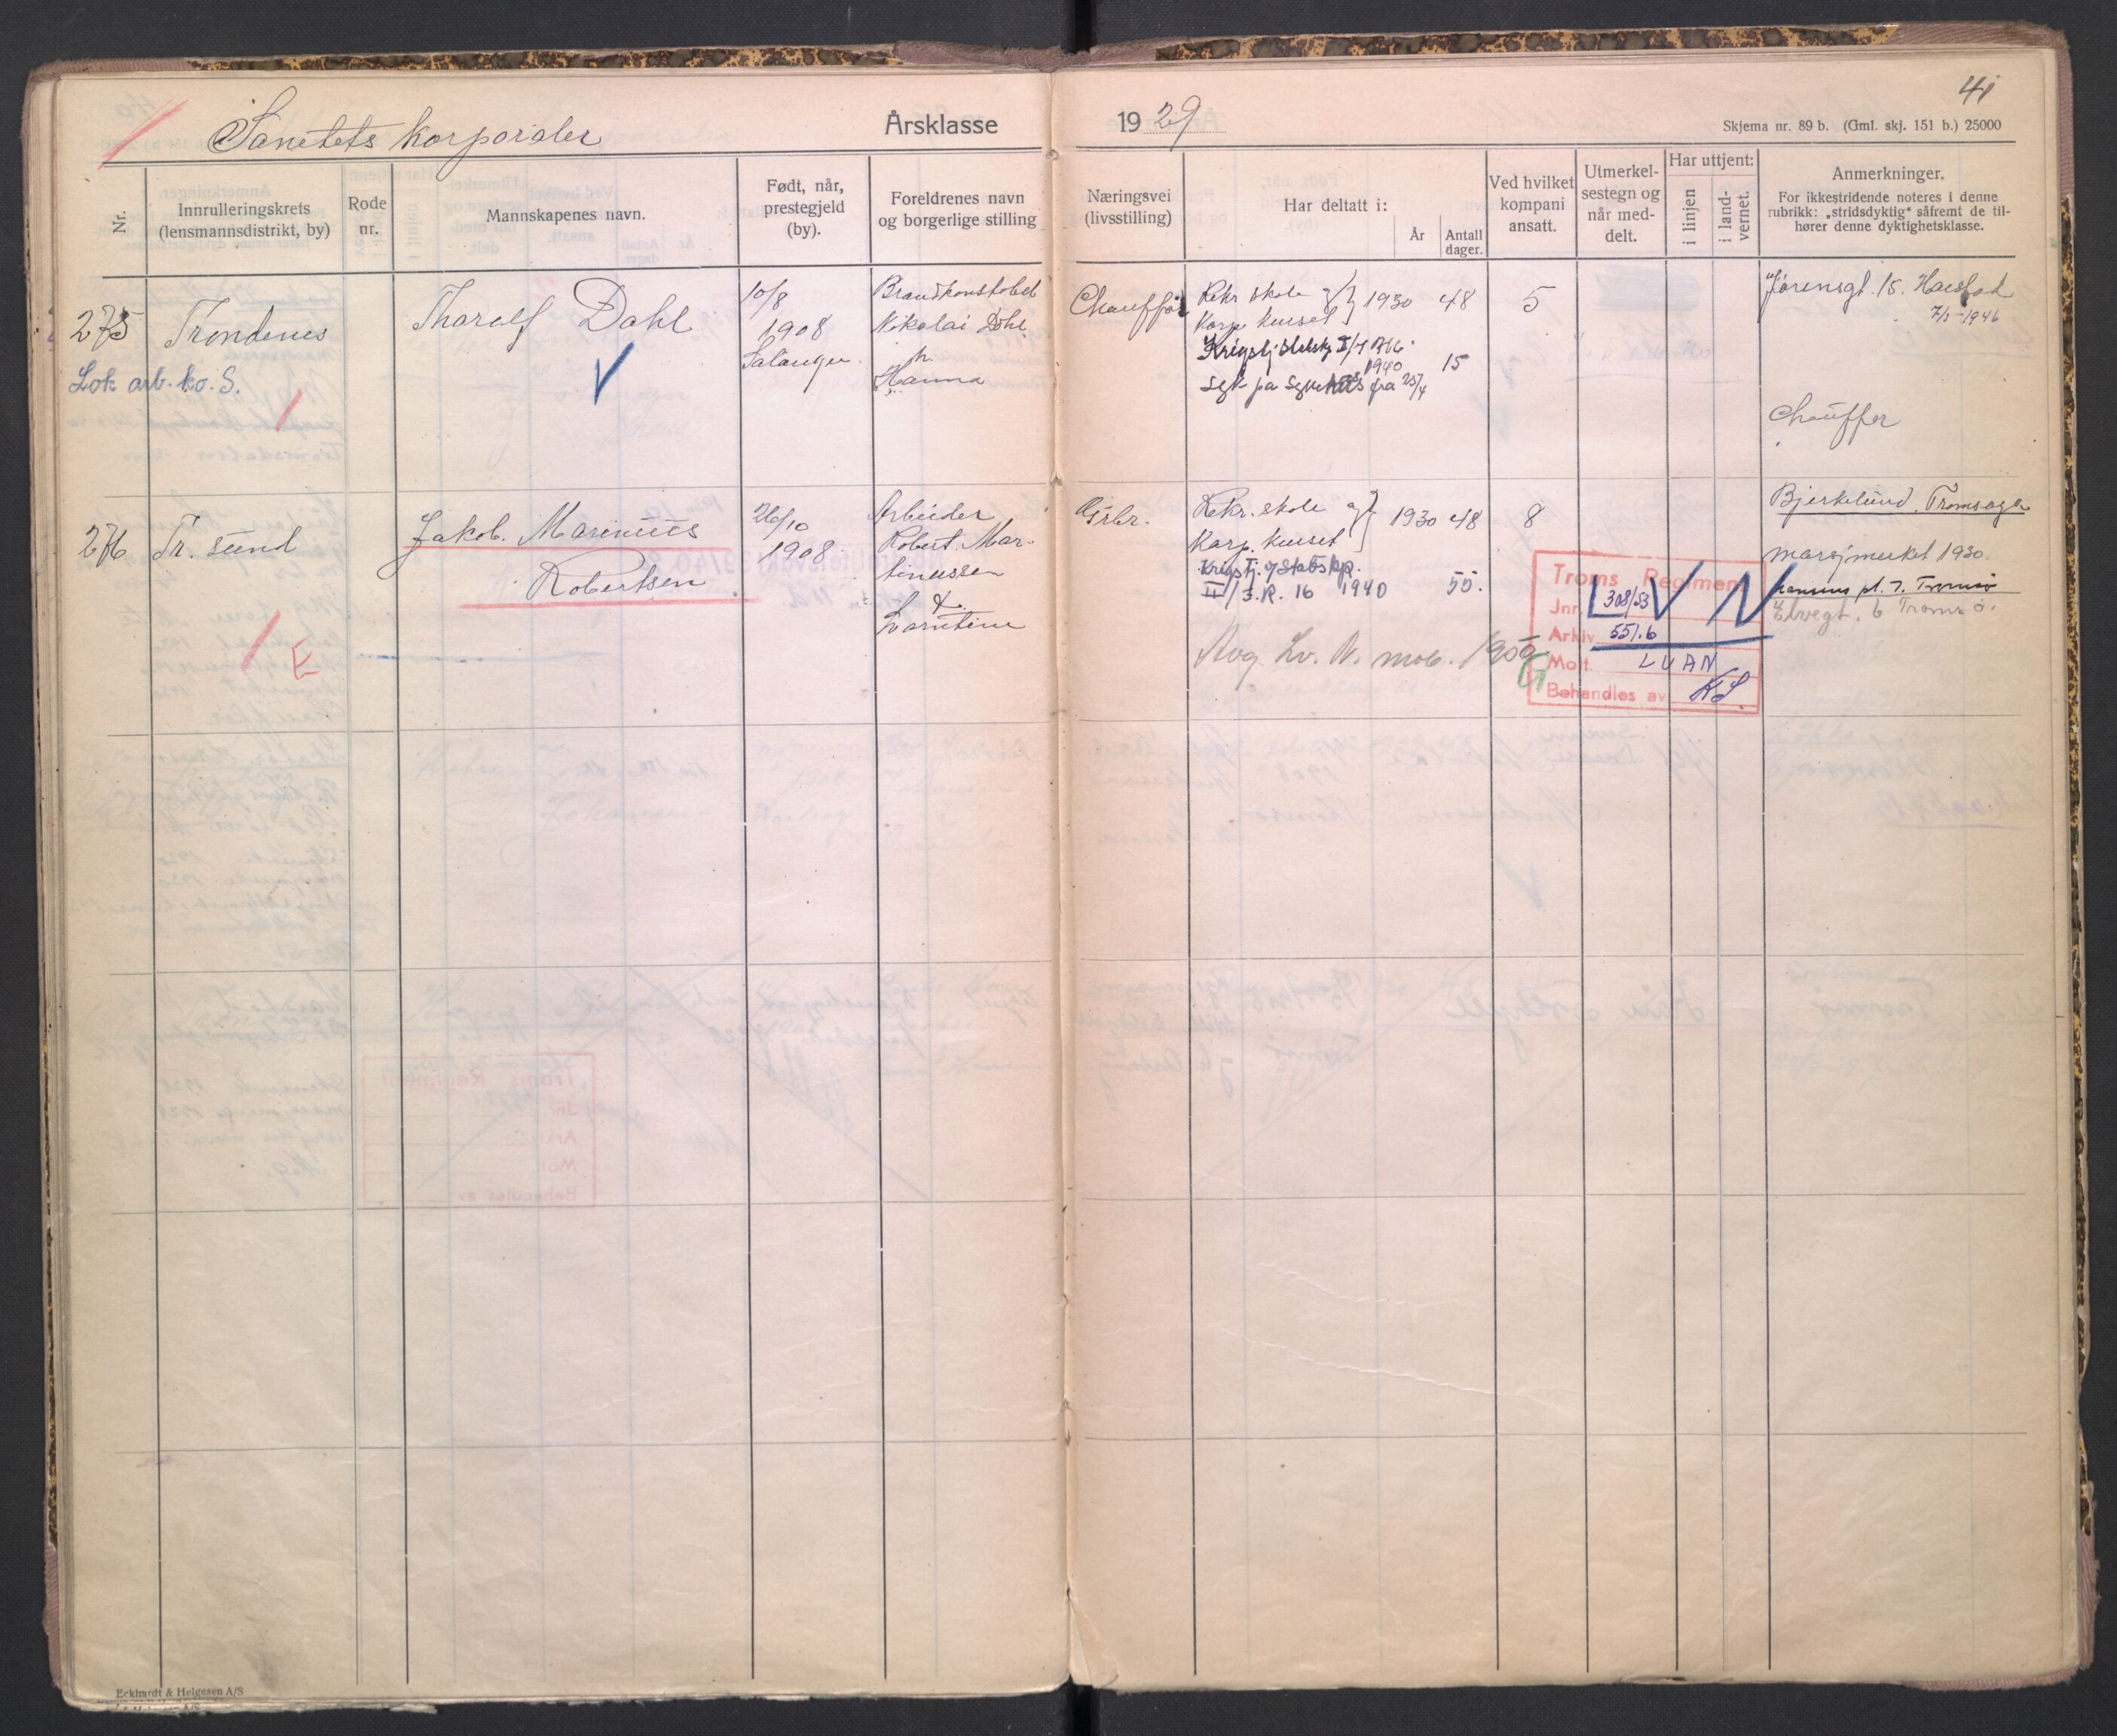 41
Sanitets korporaler
Årsklasse
1929
Skjema nr. 89 b. (Gml. skj. 151 b.) 25000
Nr.
Innrulleringskrets
(lensmannsdistrikt, by)
Rode
nr.
Mannskapenes navn.
Født, når,
prestegjeld
(by).
Foreldrenes navn
og borgerlige stilling
Næringsvei
(livsstilling)
Har deltatt i:
År
Antall
dager.
Ved hvilket
kompani
ansatt.
Utmerkel-
sestegn og
når med-
delt.
Har uttjent:
i linjen
i land-
vernet.
Anmerkninger.
For ikkestridende noteres i denne
rubrikk: „stridsdyktig“ såfremt de til-
hører denne dyktighetsklasse.
275
Trondenes
Lok arb. ko. S.
Thoralf Dahl
10/8
1908
Salangen
Brandkonstabel
Nikolai Dahl
h.
Hanna
Chauffør
Rekr skole og
Korp kurset
1930
48
1940
15
på fra 25/4
5
15. Harstad
1946
Chauffør
276
Tr. sund
E
Jakob. Marinius
Robertsen
26/10
1908
Arbeider
Robert Mar-
tinussen
&
Grbr.
Rekr. skole og
Korp. kurset
1930
48
Krigstj. Stabskp.
II/I.R. 16 1940
55.
Avg. Lv. N. mob. 1950
8
G
Troms Regiment
Jnr. 308/53
Arkiv 551.6
Mott. LVAN
Behandles av KS
LVN
Bjerkelund, Tromsøya
marsjmerket 1930.
pl. 7. Tromsø
Elvegt. 6 Tromsø.
Eckhardt & Helgesen A/S